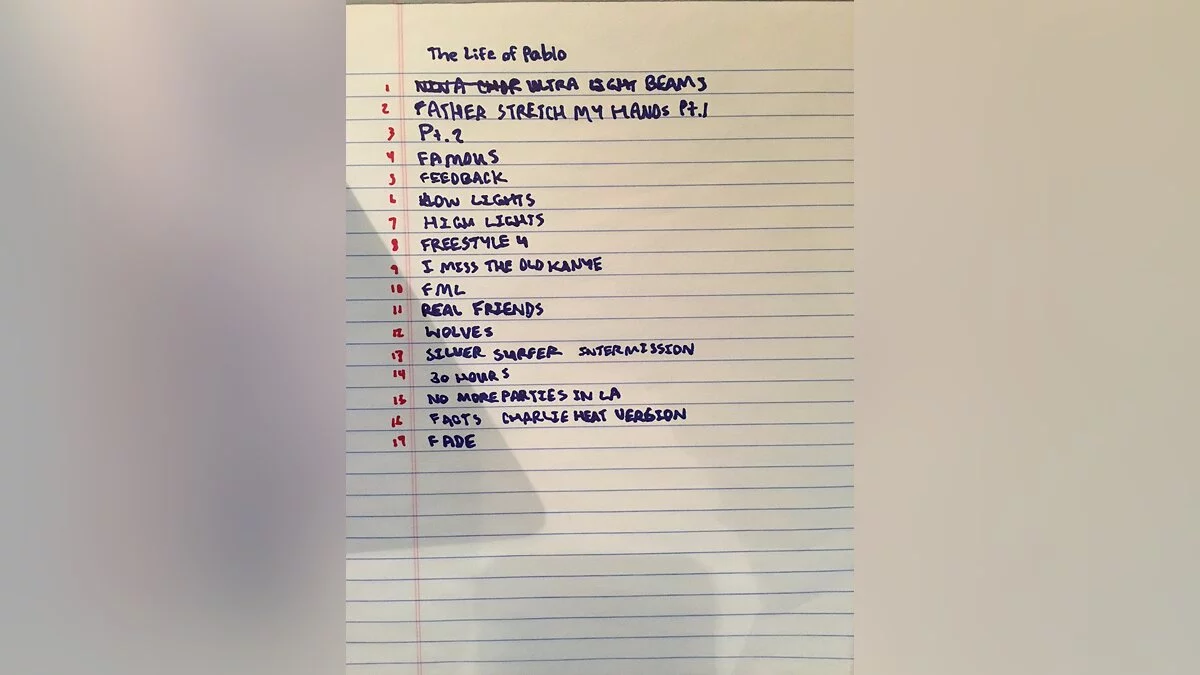 The Life of Pablo
1 ULTRA LIGHT BEAMS
2 FATHER STRETCH MY HANDS Pt.1
3 Pt. 2
4 FAMOUS
5 FEEDBACK
6 LOW LIGHTS
7 HIGH LIGHTS
8 FREESTYLE 4
9 I MISS THE OLD KANYE
10 FML
11 REAL FRIENDS
12 WOLVES
13 SILVER SURFER INTERMISSION
14 30 HOURS
15 NO MORE PARTIES IN LA
16 FACTS CHARLIE HEAT VERSION
17 FADE